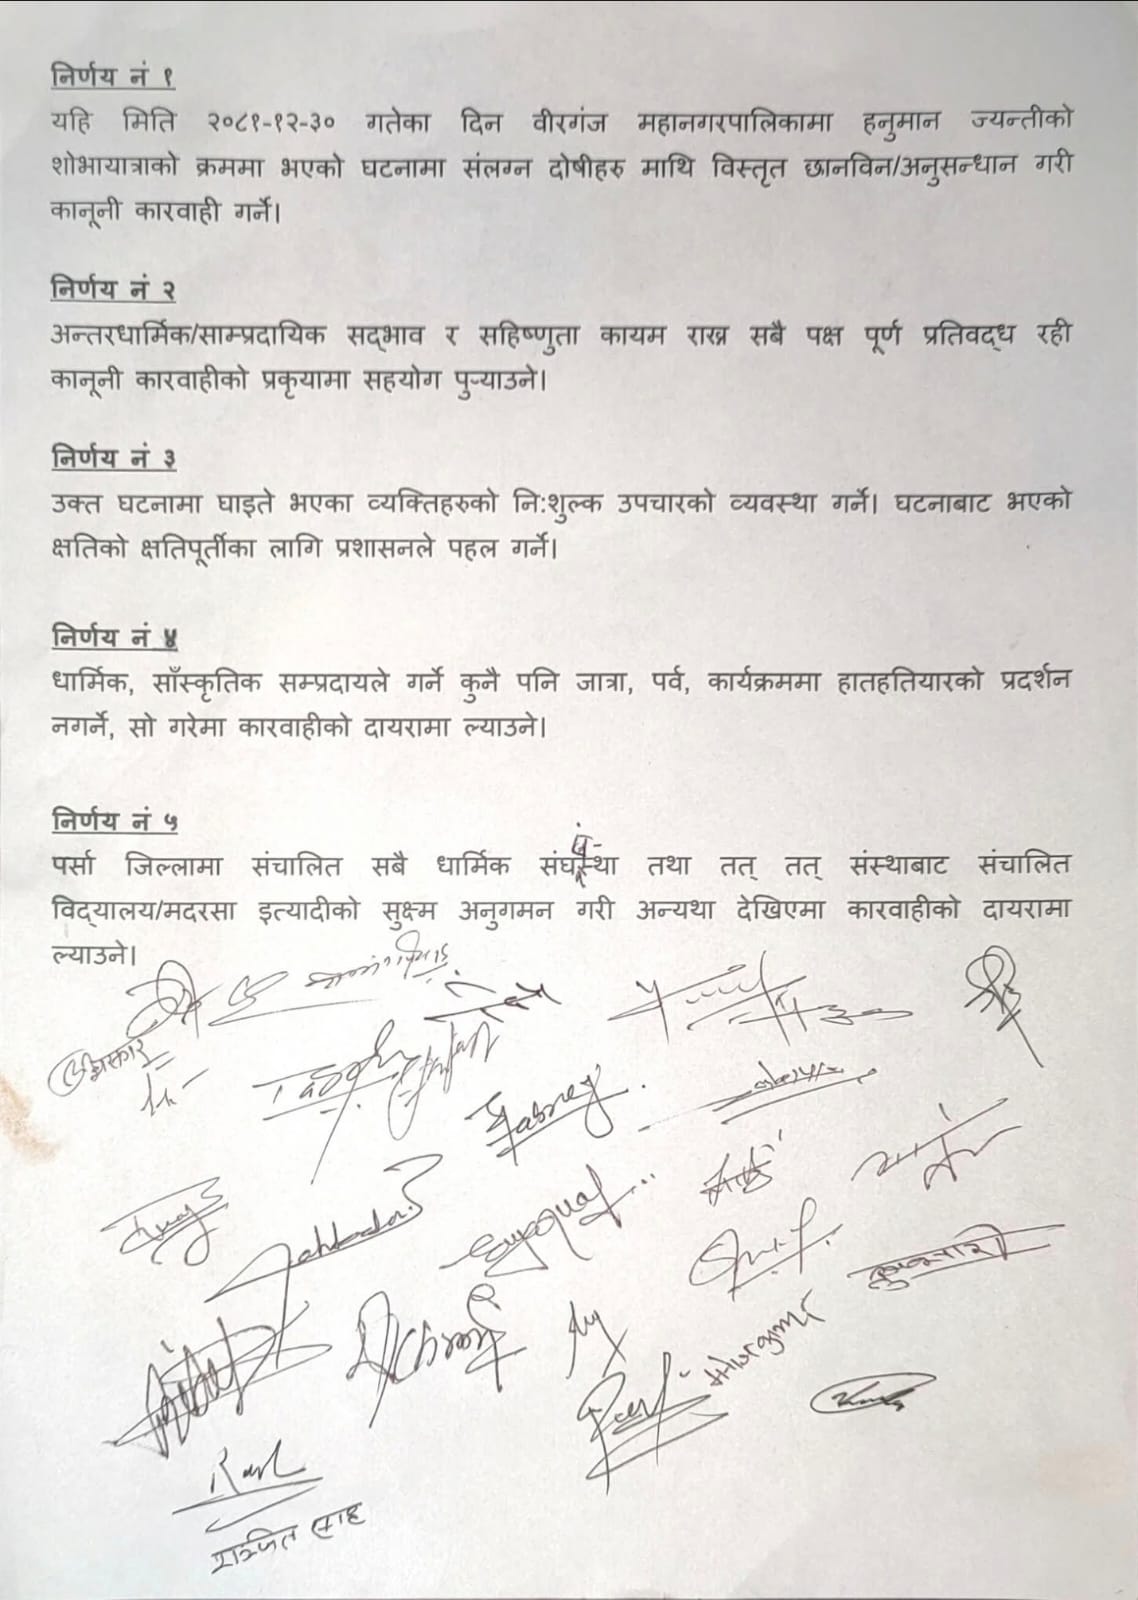 निर्णय नं १
यहि मिति २०८१-१२-३० गतेका दिन वीरगंज महानगरपालिकामा हनुमान ज्यन्तीको
शोभायात्राको क्रममा भएको घटनामा संलग्न दोषीहरु माथि विस्तृत छानविन/अनुसन्धान गरी
कानूनी कारवाही गर्ने।
निर्णय नं २
अन्तरधार्मिक/साम्प्रदायिक सद्‌भाव र सहिष्णुता कायम राख्न सबै पक्ष पूर्ण प्रतिवद्‌ध रही
कानूनी कारवाहीको प्रकृयामा सहयोग पुर्‍याउने।
निर्णय नं ३
उक्त घटनामा घाइते भएका व्यक्तिहरुको नि:शुल्क उपचारको व्यवस्था गर्ने। घटनाबाट भएको
क्षतिको क्षतिपूर्तीका लागि प्रशासनले पहल गर्ने।
निर्णय नं ४
धार्मिक, साँस्कृतिक सम्प्रदायले गर्ने कुनै पनि जात्रा, पर्व, कार्यक्रममा हातहतियारको प्रदर्शन
नगर्ने, सो गरेमा कारवाहीको दायरामा ल्याउने।
निर्णय नं ५
पर्सा जिल्लामा संचालित सबै धार्मिक संघसंस्था तथा तत् तत् संस्थाबाट संचालित
विद्‌यालय/मदरसा इत्यादीको सुक्ष्म अनुगमन गरी अन्यथा देखिएमा कारवाहीको दायरामा
ल्याउने।